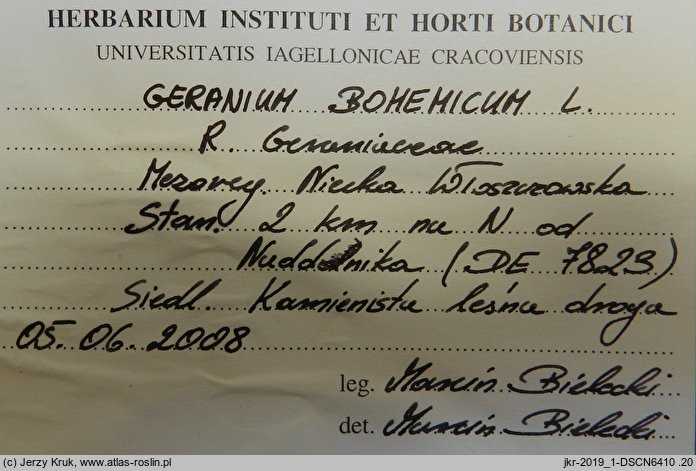 HERBARIUM INSTITUTI ET HORTI BOTANICI
UNIVERSITATIS IAGELLONICAE CRACOVIENSIS
GERANIUM BOHEMICUM L.
R. Geraniaceae
Mezoreg. Niecka Włoszczowska
Stan. 2 km na N od
(DE 7823)
Siedl. Kamienista leśna droga
05.06.2008
leg. Marcin Bielecki
det. Marcin Bielecki
(c) Jerzy Kruk, www.atlas-roslin.pl
jkr-2019_1-DSCN6410_20